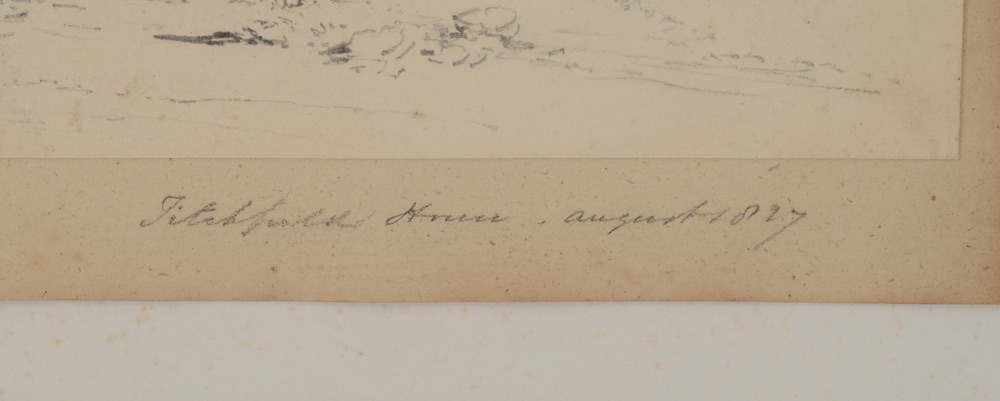 Titchfield House . august 1827